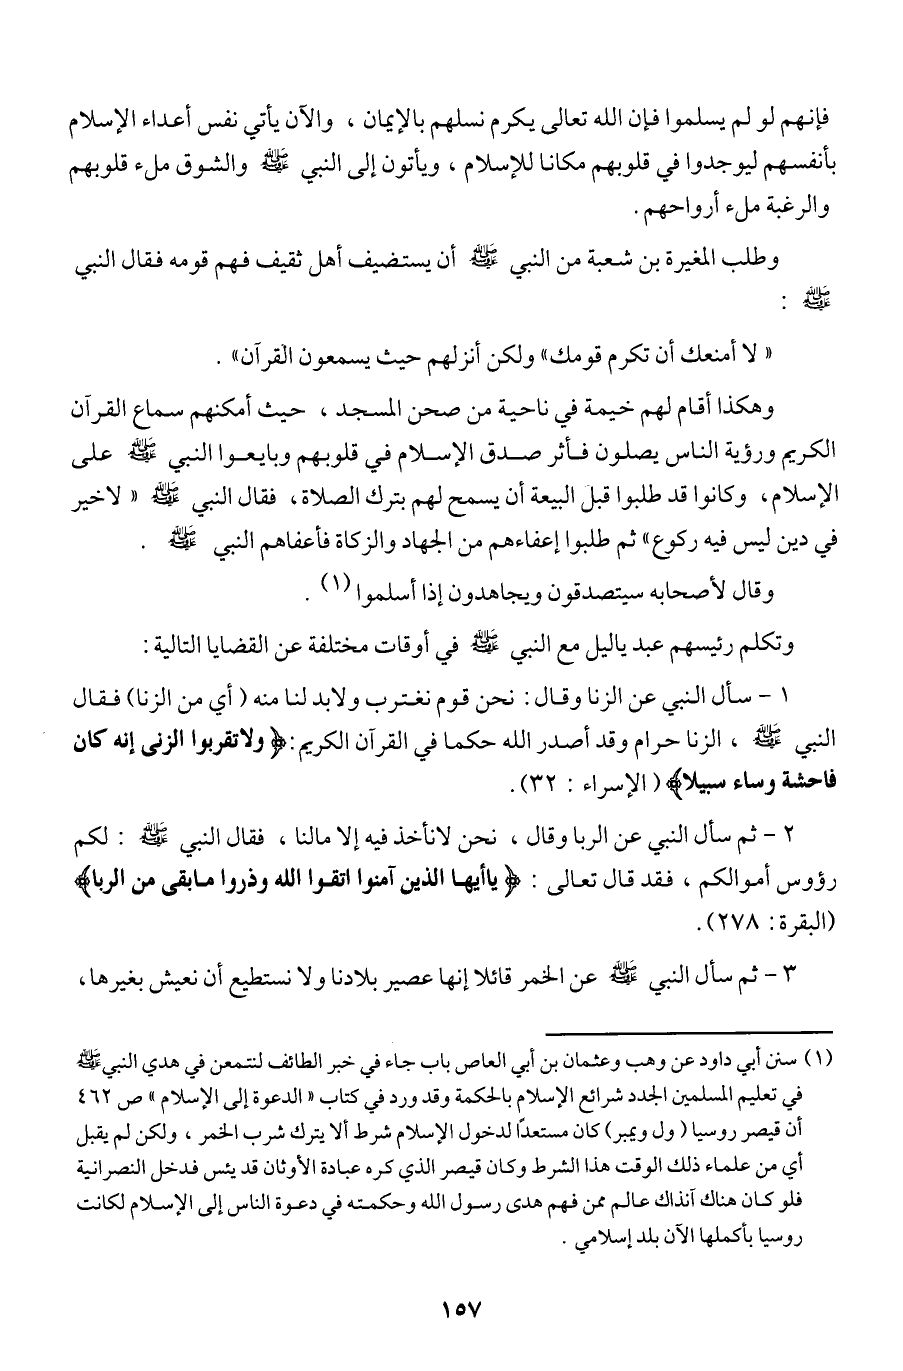 فإنهم لو لم يسلموا فإن الله تعالى يكرم نسلهم بالإيمان ، والآن يأتي نفس أعداء الإسلام
بأنفسهم ليوجدوا في قلوبهم مكانا للإسلام ، ويأتون إلى النبي ﷺ والشوق ملء قلوبهم
والرغبة ملء أرواحهم .
وطلب المغيرة بن شعبة من النبي ﷺ أن يستضيف أهل ثقيف فهم قومه فقال النبي
ﷺ :
« لا أمنعك أن تكرم قومك» ولكن أنزلهم حيث يسمعون القرآن» .
وهكذا أقام لهم خيمة في ناحية من صحن المسجد ، حيث أمكنهم سماع القرآن
الكريم ورؤية الناس يصلون فأثر صدق الإسلام في قلوبهم وبايعوا النبي ﷺ على
الإسلام، وكانوا قد طلبوا قبل البيعة أن يسمح لهم بترك الصلاة، فقال النبي ﷺ « لاخير
في دين ليس فيه ركوع» ثم طلبوا إعفاءهم من الجهاد والزكاة فأعفاهم النبي ﷺ .
وقال لأصحابه سيتصدقون ويجاهدون إذا أسلموا (١) .
وتكلم رئيسهم عبد ياليل مع النبي ﷺ في أوقات مختلفة عن القضايا التالية :
١ - سأل النبي عن الزنا وقال : نحن قوم نغترب ولابد لنا منه ( أي من الزنا) فقال
النبي ﷺ ، الزنا حرام وقد أصدر الله حكما في القرآن الكريم :﴿ ولاتقربوا الزنى إنه كان
فاحشة وساء سبيلا﴾ ( الإسراء : ٣٢).
٢ - ثم سأل النبي عن الربا وقال ، نحن لانأخذ فيه إلا مالنا ، فقال النبي ﷺ : لكم
رؤوس أموالكم ، فقد قال تعالى : ﴿ ياأيها الذين آمنوا اتقوا الله وذروا مابقى من الربا﴾
(البقرة : ٢٧٨).
٣ - ثم سأل النبي ﷺ عن الخمر قائلا إنها عصير بلادنا ولا نستطيع أن نعيش بغيرها ،
(١) سنن أبي داود عن وهب وعثمان بن أبي العاص باب جاء في خبر الطائف لنتمعن في هدي النبي ﷺ
في تعليم المسلمين الجدد شرائع الإسلام بالحكمة وقد ورد في كتاب « الدعوة إلى الإسلام » ص ٤٦٢
أن قيصر روسيا ( ول ويمبر) كان مستعدًا لدخول الإسلام شرط ألا يترك شرب الخمر ، ولكن لم يقبل
أي من علماء ذلك الوقت هذا الشرط وكان قيصر الذي كره عبادة الأوثان قد يئس فدخل النصرانية
فلو كان هناك آنذاك عالم ممن فهم هدى رسول الله وحكمته في دعوة الناس إلى الإسلام لكانت
روسيا بأكملها الآن بلد إسلامي .
١٥٧